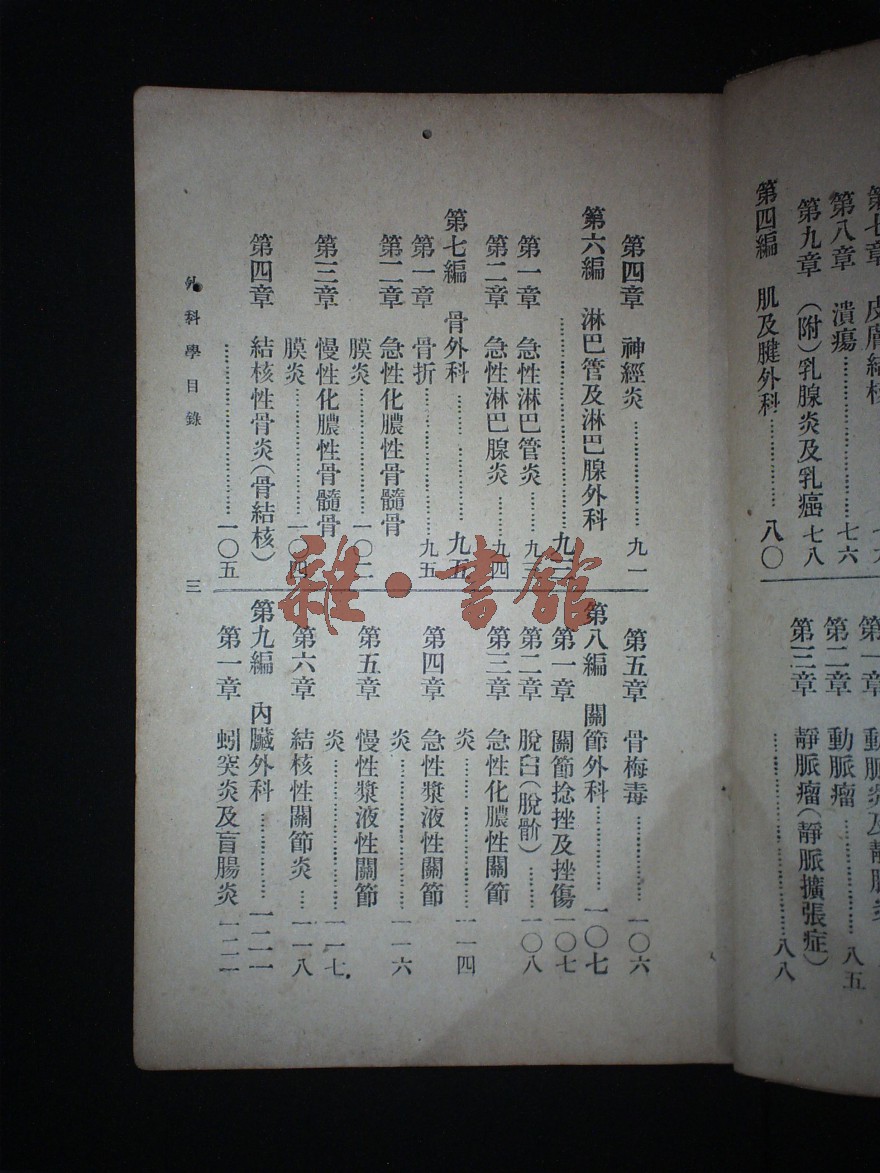 第八章　潰瘍………………七六
第九章　（附）乳腺炎及乳癌　七八
第四編　肌及腱外科………………八〇
第二章　動脈瘤………………八五
第三章　靜脈瘤（靜脈擴張症）
………………八八
第四章　神經炎………………九一
第六編　淋巴管及淋巴腺外科
………………九三
第一章　急性淋巴管炎………九三
第二章　急性淋巴腺炎………九四
第七編　骨外科………………九五
第一章　骨折………………九五
第二章　急性化膿性骨髓骨
膜炎………………一〇二
第三章　慢性化膿性骨髓骨
膜炎………………一〇四
第四章　結核性骨炎（骨結核）
………………一〇五
第五章　骨梅毒………………一〇六
第八編　關節外科………………一〇七
第一章　關節捻挫及挫傷一〇七
第二章　脫臼（脫骱）………一〇八
第三章　急性化膿性關節
炎………………一一四
第四章　急性漿液性關節
炎………………一一六
第五章　慢性漿液性關節
炎………………一一七
第六章　結核性關節炎……一一八
第九編　內臟外科………………一二一
第一章　蚓突炎及盲腸炎　一二一
外科學目錄
三
雜·書館